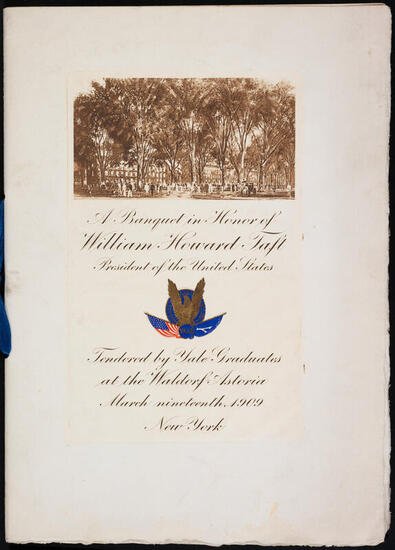 A Banquet in Honor of
William Howard Taft
President of the United States
Tendered by Yale Graduates
at the Waldorf-Astoria
March nineteenth, 1909
New York